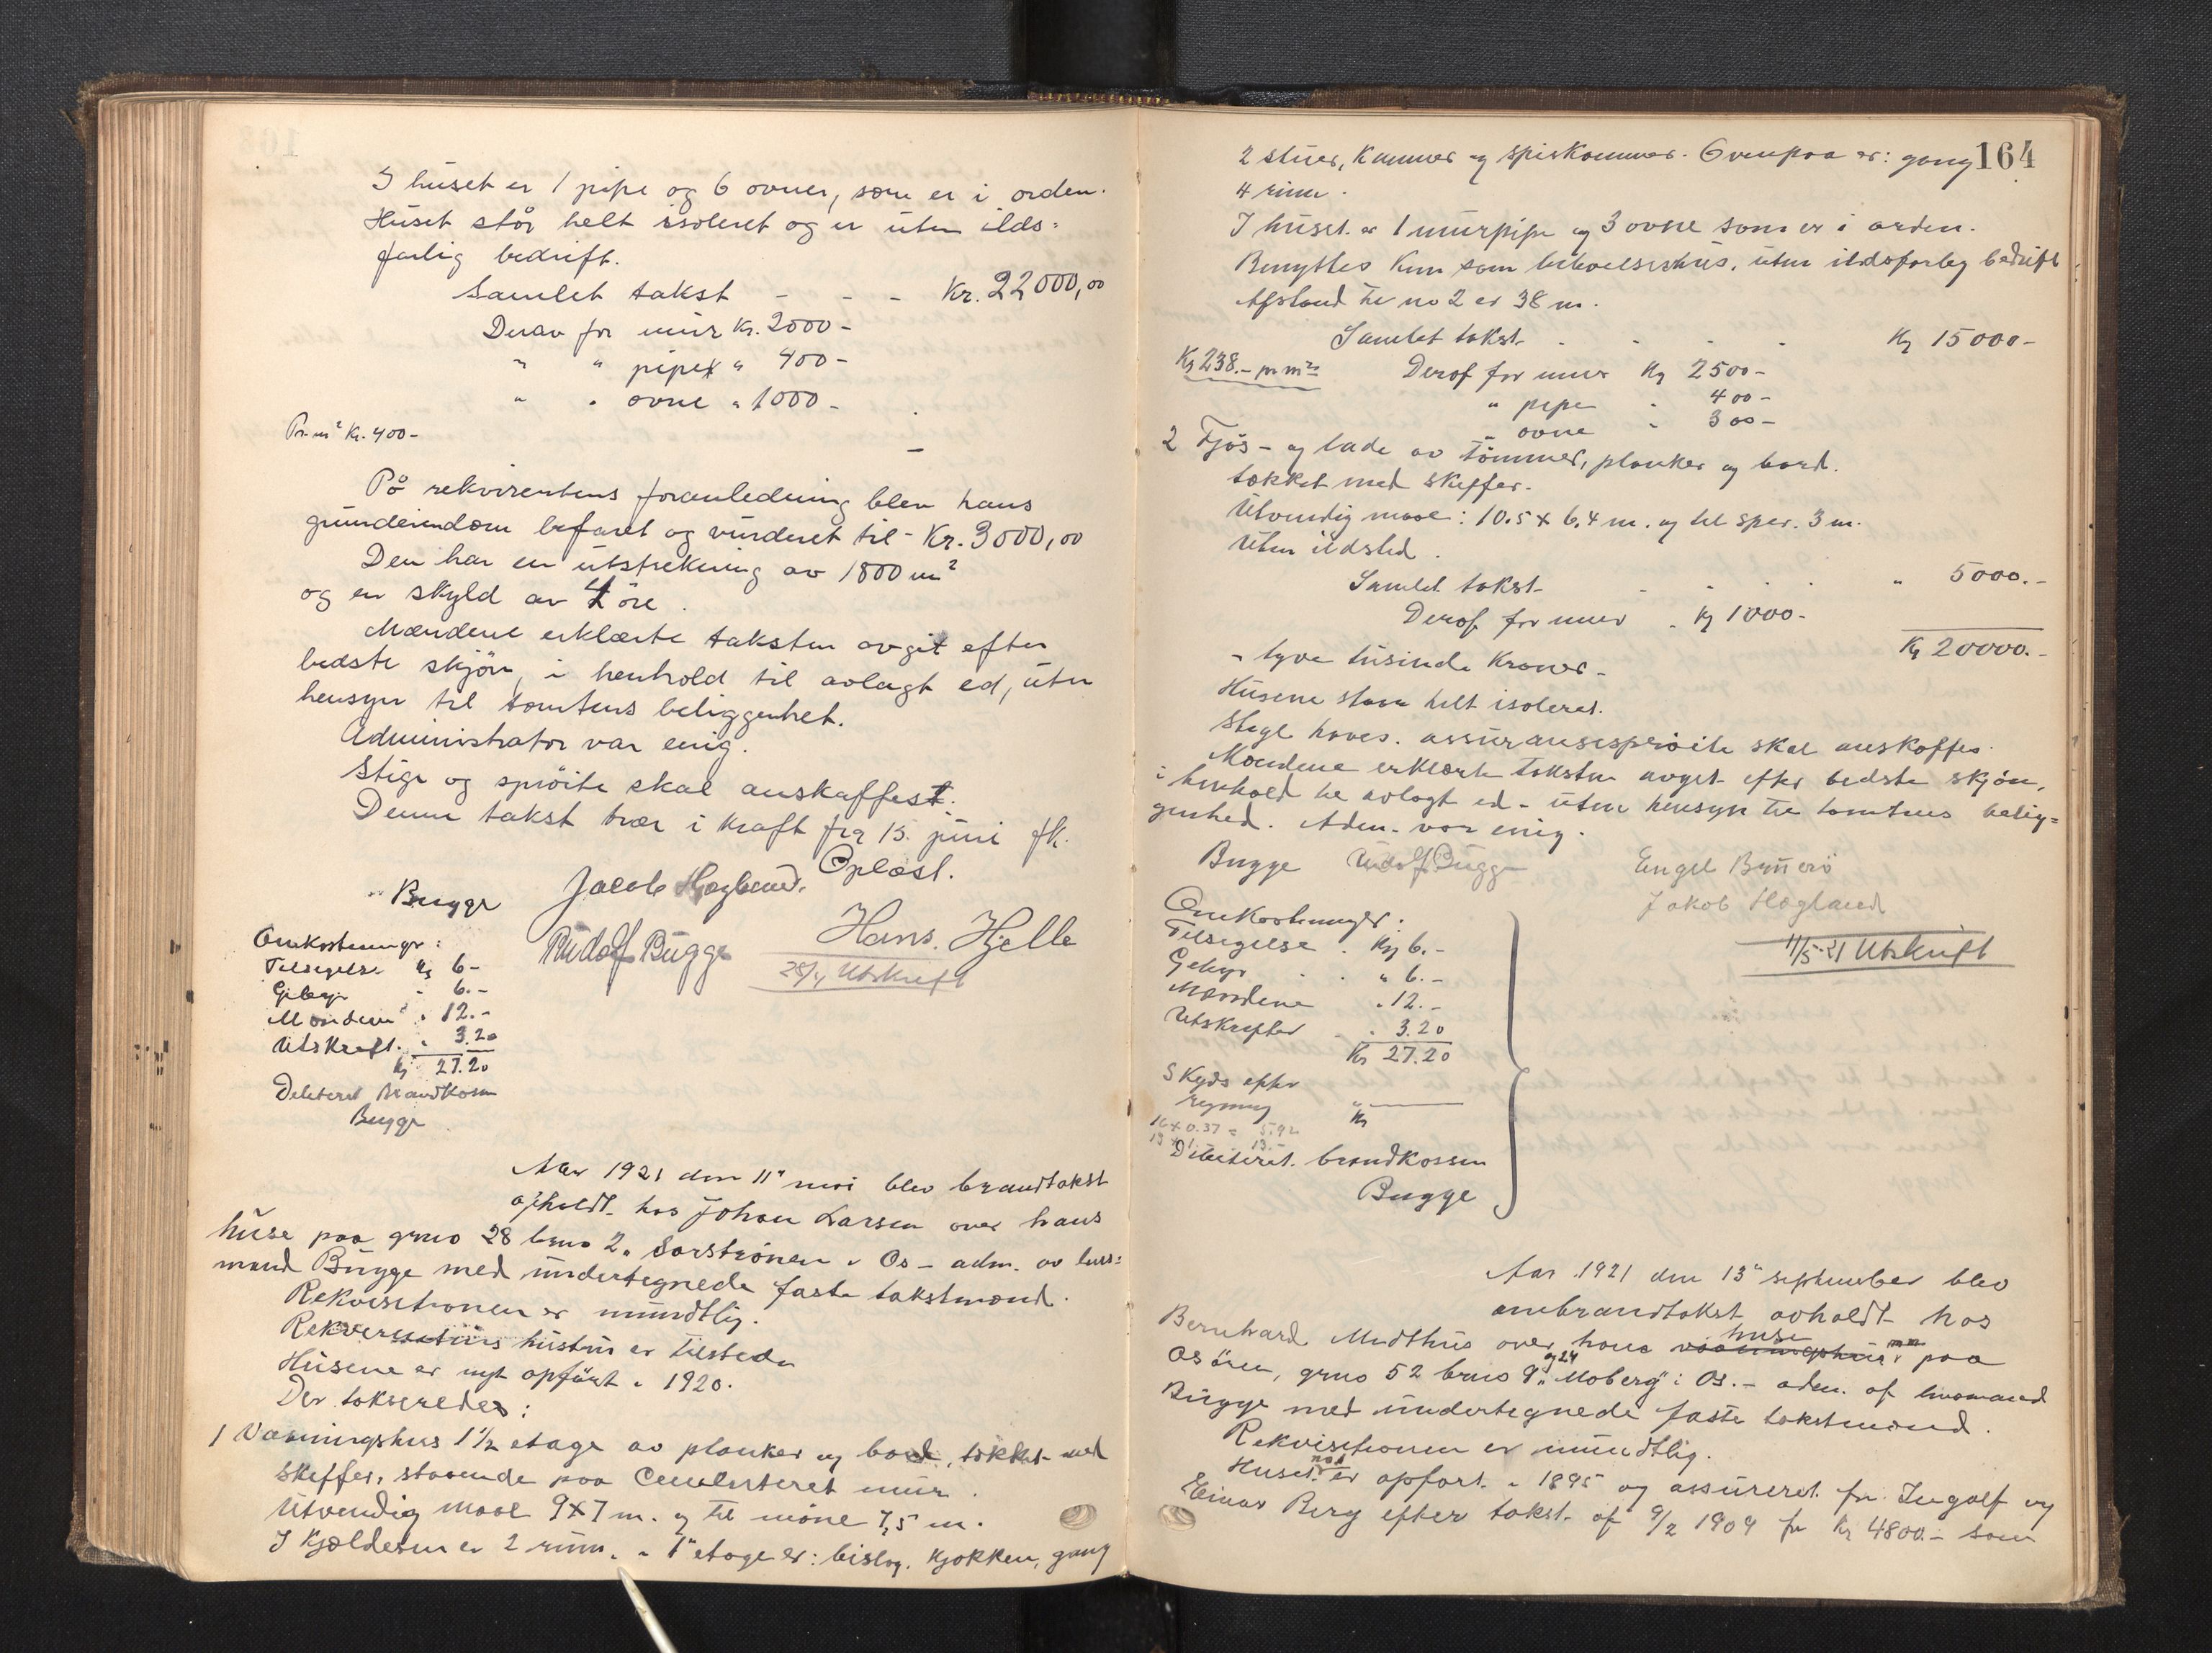 I huset er 1 pipe og 6 ovner, som er i orden.
Huset står helt isoleret og er uten ilds=
farlig bedrift.
Samlet takst - - - Kr. 22000,00
Derav for mur Kr. 2000 -
" " pipe " 400 -
" " ovne " 1000 -
Pr. m² Kr. 400 -
På rekvirentens foranledning blev hans
grundeiendom befaret og vurderet til - Kr. 3000,00
Den har en utstrekning av 1800 m²
og en skyld av 4 øre.
Mændene erklærte taksten avgit efter
bedste skjön, i henhold til avlagt ed, uten
hensyn til tomtens beliggenhet.
Administrator var enig.
Stige og spröite skal anskaffes.
Denne takst trær i kraft fra 15. juni fk.
Oplæst.
Bugge Jacob Hægland.
Rudolf Bugge Hans. Hjelle
28/4 Utskrift
Omkostninger:
Tilsigelse Kr 6 -
Gebyr " 6. -
Mændene " 12. -
Utskrift. " 3.20
Kr 27.20
Debiteret Brandkassen
Bugge
Aar 1921 den 11te mai blev brandtakst
afholdt hos Johan Larsen over hans
huse paa grno 28 brno 2 " Sørstrønen " Os - adm. av lens=
mand Bugge med undertegnede faste takstmænd.
Rekvisitionen er mundtlig.
Rekvirentens hustru er tilstede
Husene er nyt opfört i 1920.
Der takseredes:
1 Vaaningshus 1½ etage av planker og bord, tækket med
skiffer, staaende paa Cementeret mur.
Utvendig maal 9 x 7 m. og til möne 7,5 m.
I Kjælderen er 2 rum. i 1" etage er: bislag, Kjøkken, gang
164
2 stuer, Kammer og spiskammer. Ovenpaa er: gang
4 rum.
I huset er 1 murpipe og 3 ovne som er i orden.
Benyttes kun som beboelseshus, uten ildsfarlig bedrift
Afstand til no 2 er 38 m.
Samlet takst . . . . Kr 15000 -
Kr 238.- pr m² Derof for mur Kr 2500 -
" pipe " 400 -
" ovne " 300 -
2 Fjös - og lade av tömmer, planker og bord.
tækket med skiffer.
Utvendig maal: 10.5 x 6.4 m. og til sper. 3 m.
Uten ildsted.
Samlet takst - . . " 5000. -
Derof for mur . Kr 1000 -
Kr 20000. -
- tyve tusinde Kroner -
Husene staar helt isoleret.
Stige haves. assuransesprøite skal anskaffes.
Mændene erklærte taksten avgit efter bedste skjön,
i henhold til avlagt ed - uten hensyn til tomtens belig=
genhed. Adm. var enig.
Bugge Rudolf Bugge Engel Bruerö
Jakob Hægland
11/5-21 Utskrift
Omkostninger:
Tilsigelse . Kr 6. -
Gebyr . . " 6. -
Mændene " 12. -
Utskrifter " 3.20
Kr 27.20
Skyds efter
regning "
Kr
16 x 0.37 = 5.92
13 x 1. 13. -
Debiteret. brandkassen
Bugge
Aar 1921 den 13te september blev
ombrandtakst avholdt hos
Bernhard Midthus over hans vaaningshus huse paa
Osören, grno 52 brno 9 og 24 " Moberg" i Os. - adm. af lensmand
Bugge med undertegnede faste takstmænd.
Rekvisitionen er mundtlig.
Huset no 1 er opført i 1895 og assureret for Ingolf og
Einar Berg efter takst af 9/2 1909 for Kr 4800. - som